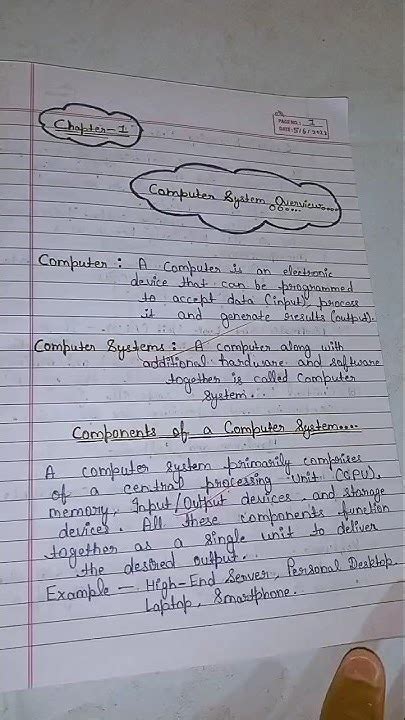 PAGE NO.: 1
DATE: 5/6/2022
Chapter-1
Computer System Overview....
Computer : A Computer is an electronic
device that can be programmed
to accept data (input), process
it and generate results (output).
Computer Systems : A computer along with
additional hardware and software
together is called Computer
System..
Components of a Computer System....
A computer system primarily comprises
of a central processing unit (CPU),
memory, Input/Output devices and storage
devices. All these components function
together as a single unit to deliver
the desired output.
Example — High-End Server, Personal Desktop
Laptop, Smartphone.